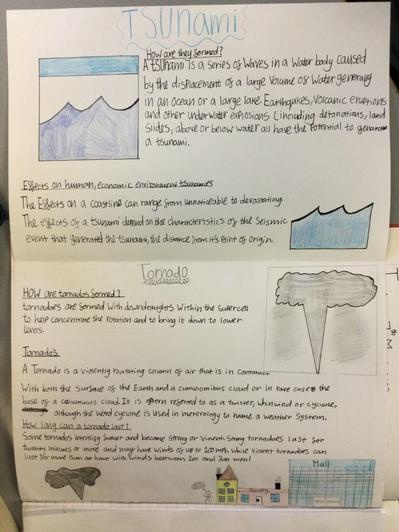 TSUNAMI
How are they formed?
A tsunami is a series of waves in a water body caused
by the displacement of a large volume of water generaly
in an ocean or a large lake. Earthquikes, volcanic eruptions
and other underwater explosions (including detonations, land
slides, above or below water all have the potential to generate
a tsunami.
Effects on human, economic environment tsunamies
The Effects on a coastline can range from unnoticeable to devastating.
The effects of a tsunami depend on the characteristics of the seismic
event that generated the tsunami, the distance from it's point of origin.
Tornado
HOW are tornados formed?
tornadoes are formed with downdraughts within the supercell
to help concentrate the rotation and to bring it down to lower
lavers.
Tornado's
A Tornado is a violently rotating column of air that is in contact
with both the surface of the Earth and a cumunonimbus cloud or in rare cases the
base of a cumumus cloud. It is often referred to as a twister, whirlwind or cyclone,
although the word cyclone is used in meterology to name a weather system.
How long can a tornado last?
Some tornados intensify further and become strong or vinent strong tornadoes last for
twenty minutes or more and may have winds of up to 200 mph while vicent tornadoes can
last for more than an hour with winds between 200 and 300 mph!
Mall